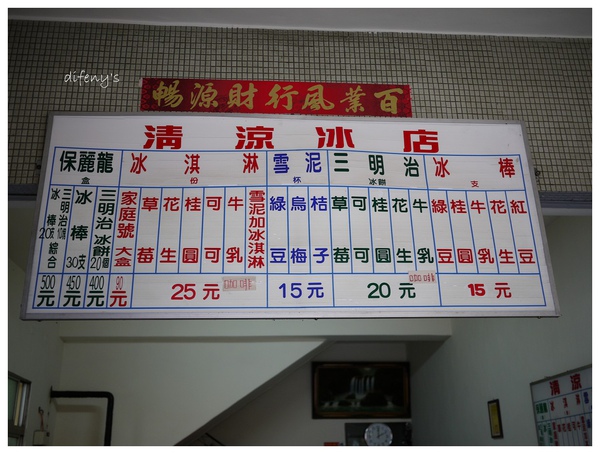 difeny's
百業風行財源暢
清涼冰店
保麗龍 冰淇淋 雪泥 三明治 冰棒
盒 份 杯 冰餅 支
冰棒20支
三明治10塊
綜合
冰棒30支
三明治冰餅20個
家庭號大盒
草莓
花生
桂圓
可可
牛乳
雪泥加冰淇淋
綠豆
烏梅
桔子
草莓
可可
桂圓
花生
牛乳
綠豆
桂圓
牛乳
花生
紅豆
咖啡
咖啡
500元 450元 400元 90元 25元 15元 20元 15元
清涼